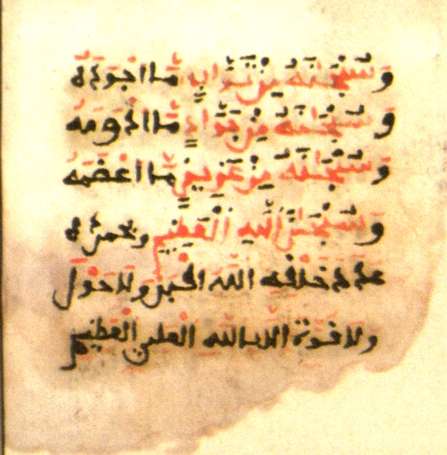 وسبحنه من تواب ما اجوده
وسبحنه من جواد ما
وسبحنه من ما اعضمه
وسبحن الله العظيم وبحمده
عدد خلقه الله اكبر ولا حول
ولا قوة الا بالله العلي العظيم